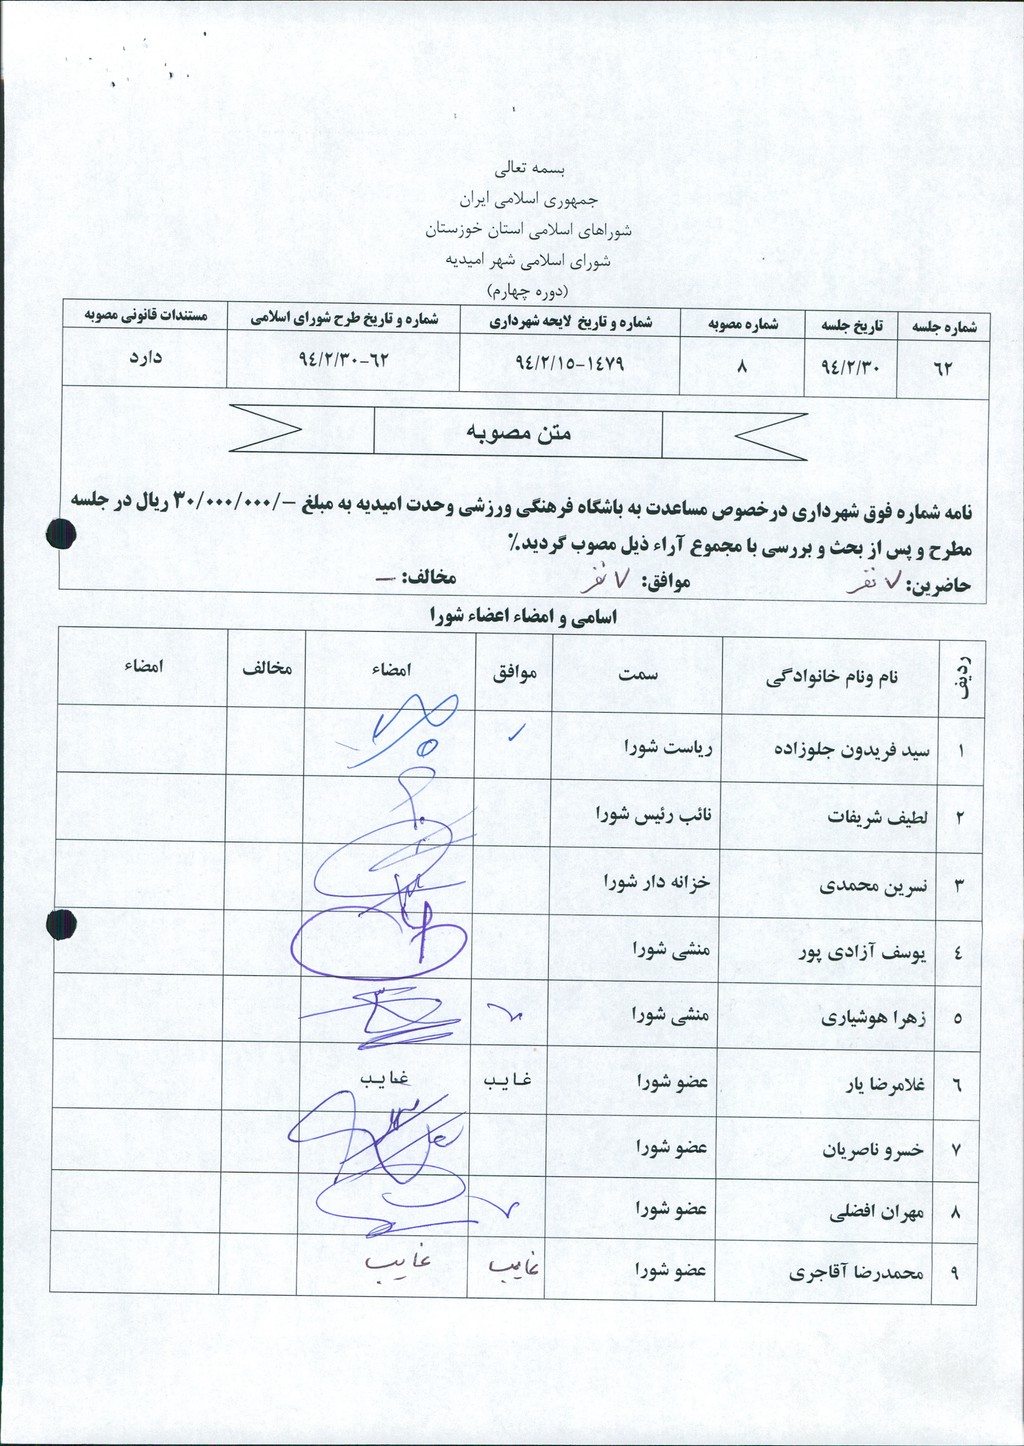 بسمه تعالی
جمهوری اسلامی ایران
شوراهای اسلامی استان خوزستان
شورای اسلامی شهر امیدیه
(دوره چهارم)
شماره جلسه تاریخ جلسه شماره مصوبه شماره و تاریخ لایحه شهرداری شماره و تاریخ طرح شورای اسلامی مستندات قانونی مصوبه
۶۲ ۹۴/۲/۳۰ ۸ ۹۴/۲/۱۵-۱۴۷۹ ۹۴/۲/۳۰-۶۲ دارد
متن مصوبه
نامه شماره فوق شهرداری درخصوص مساعدت به باشگاه فرهنگی ورزشی وحدت امیدیه به مبلغ -/۳۰/۰۰۰/۰۰۰ ریال در جلسه
مطرح و پس از بحث و بررسی با مجموع آراء ذیل مصوب گردید.٪
حاضرین: ۷ نفر موافق: ۷ نفر مخالف: –
اسامی و امضاء اعضاء شورا
ردیف نام ونام خانوادگی سمت موافق امضاء مخالف امضاء
۱ سید فریدون جلوزاده ریاست شورا ✓
۲ لطیف شریفات نائب رئیس شورا
۳ نسرین محمدی خزانه دار شورا
۴ یوسف آزادی پور منشی شورا
۵ زهرا هوشیاری منشی شورا
۶ غلامرضا یار عضو شورا غایب غایب
۷ خسرو ناصریان عضو شورا
۸ مهران افضلی عضو شورا
۹ محمدرضا آقاجری عضو شورا غایب غایب